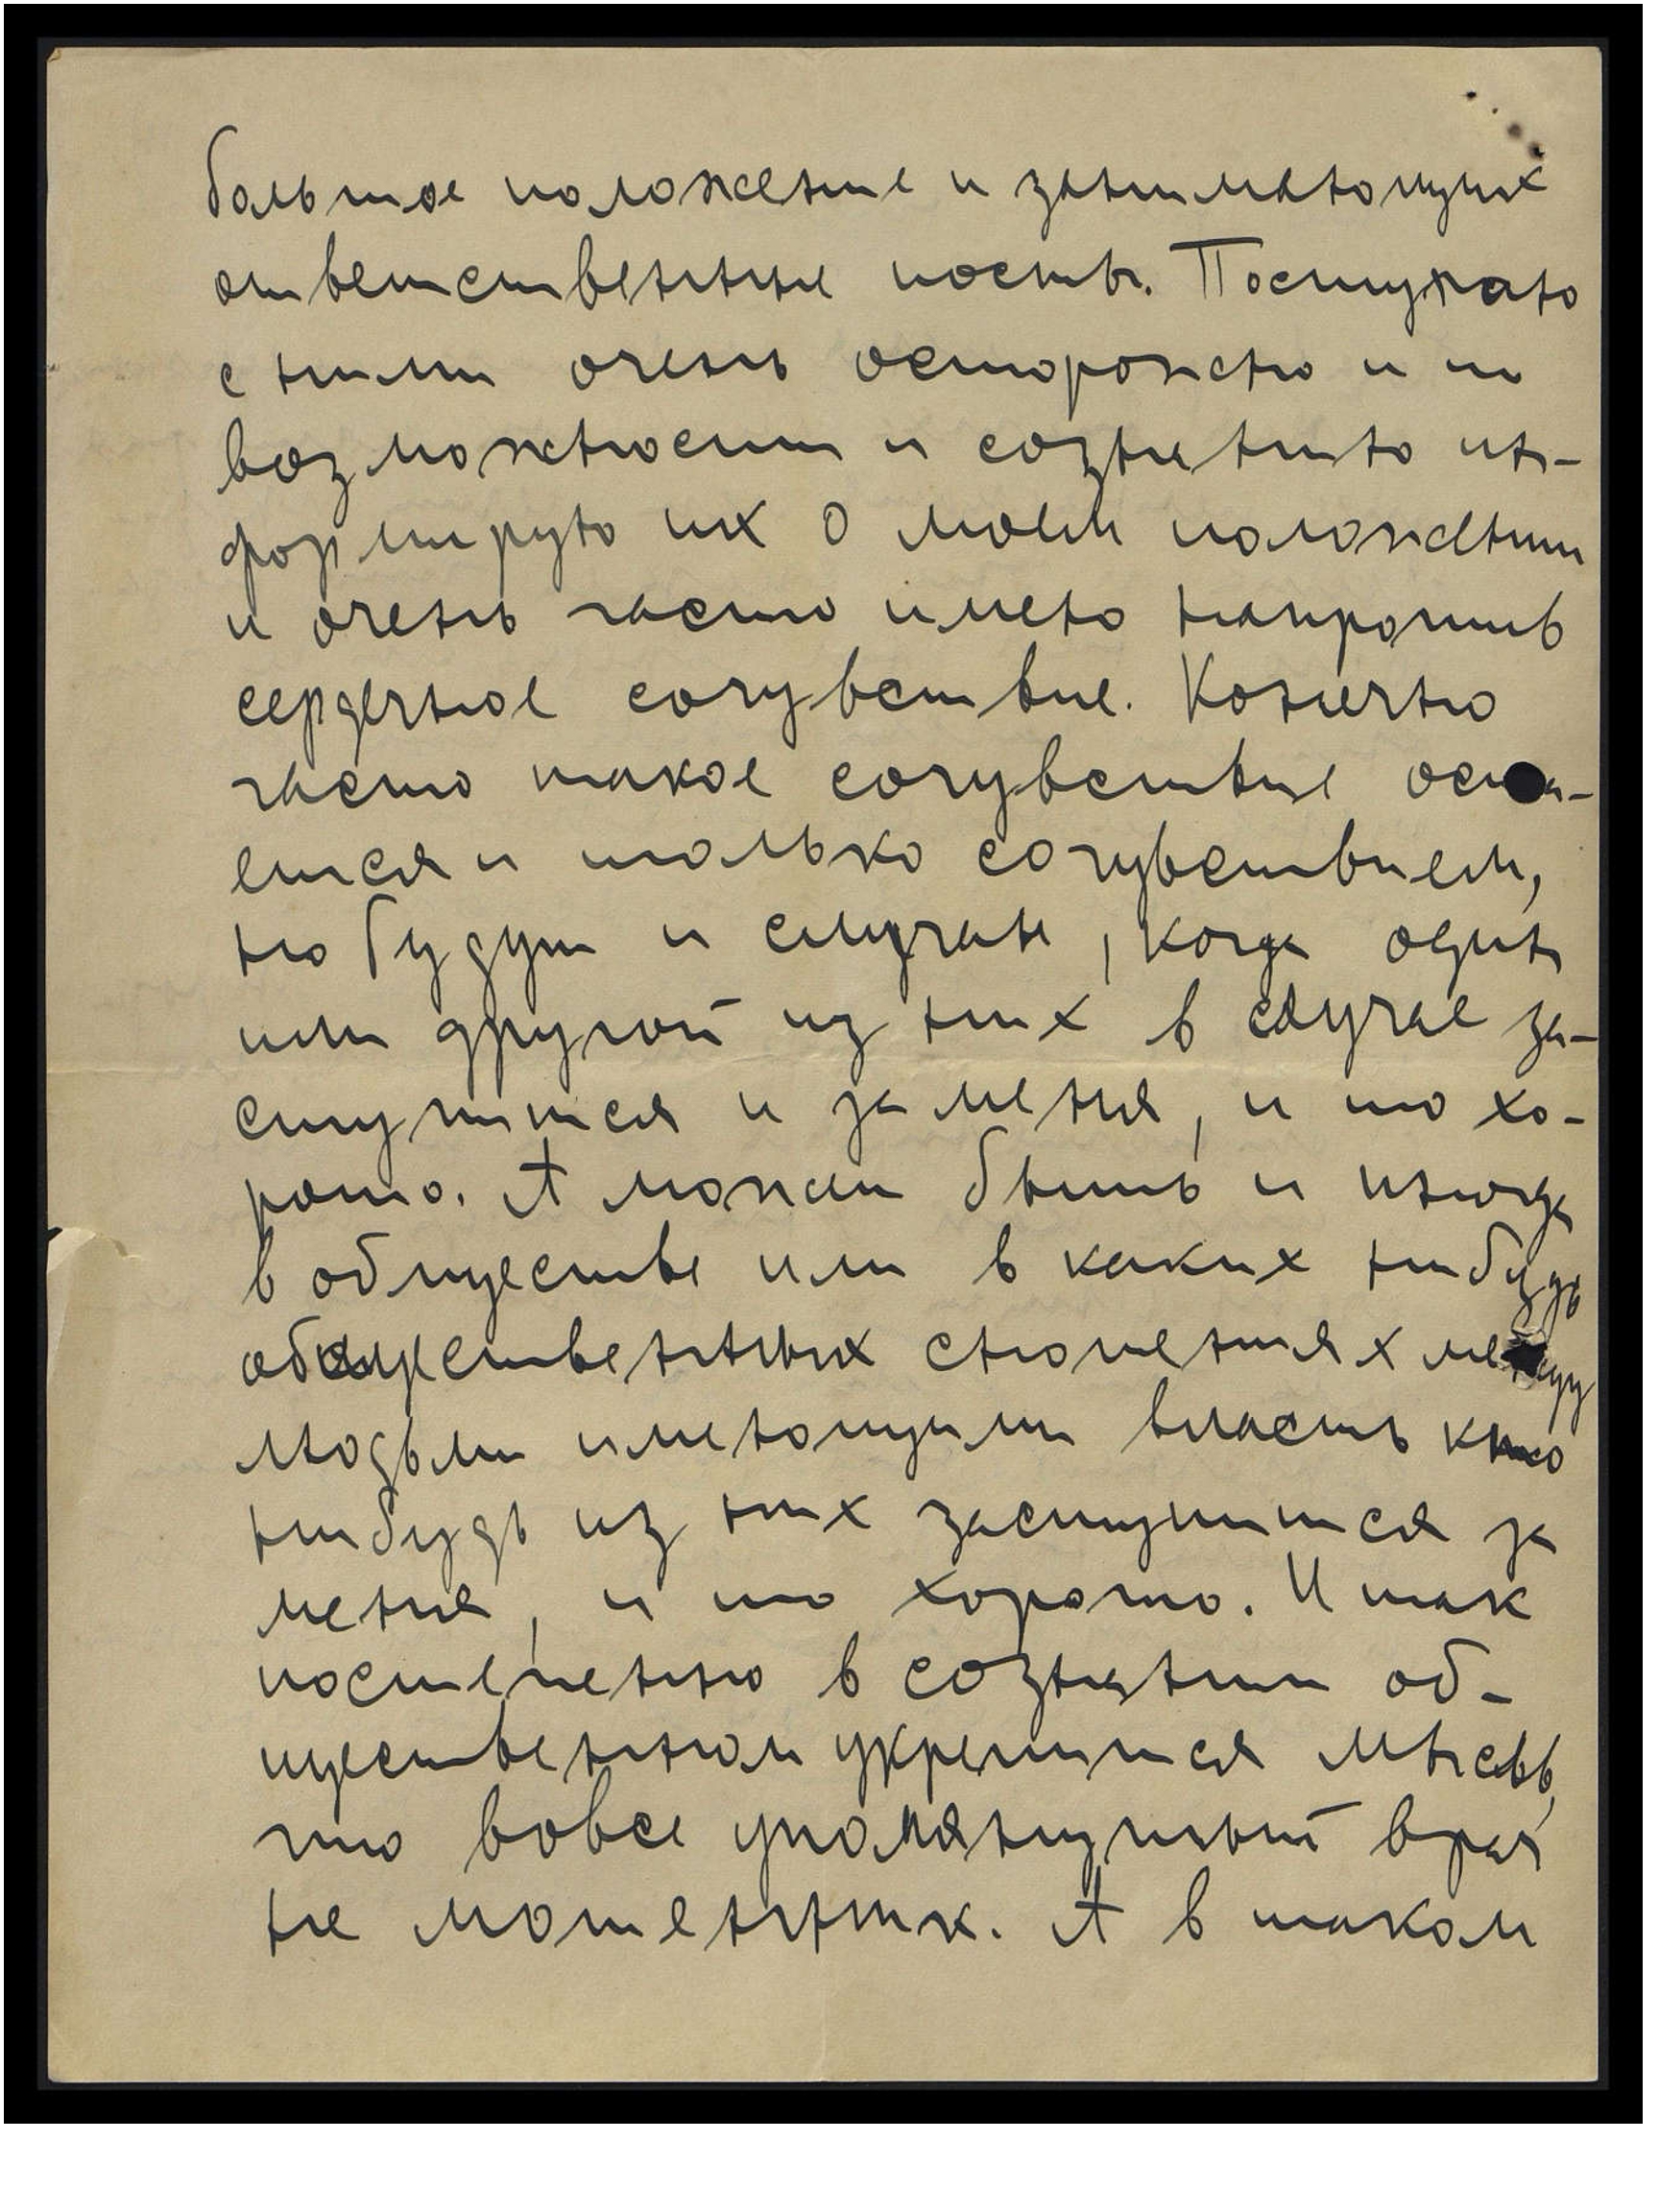 большое положение и занимающих
ответственные посты. Поступаю
с ними очень осторожно и по
возможности и сознанию ин-
формирую их о моем положении
и очень часто имею напротив
сердечное сочувствие. Конечно
часто такое сочувствие оста-
ется и только сочувствием,
но будут и случаи, когда один
или другой из них в случае за-
ступится и за меня, и то хо-
рошо. А может быть и иногда
в обществе или в каких нибудь
общественных сношениях между
людьми имеющими власть кто
нибудь из них заступится за
меня, и то хорошо. И так
постепенно в сознании об-
щественном укрепится мысль,
что вовсе упомянутый врач
не мошенник. А в таком